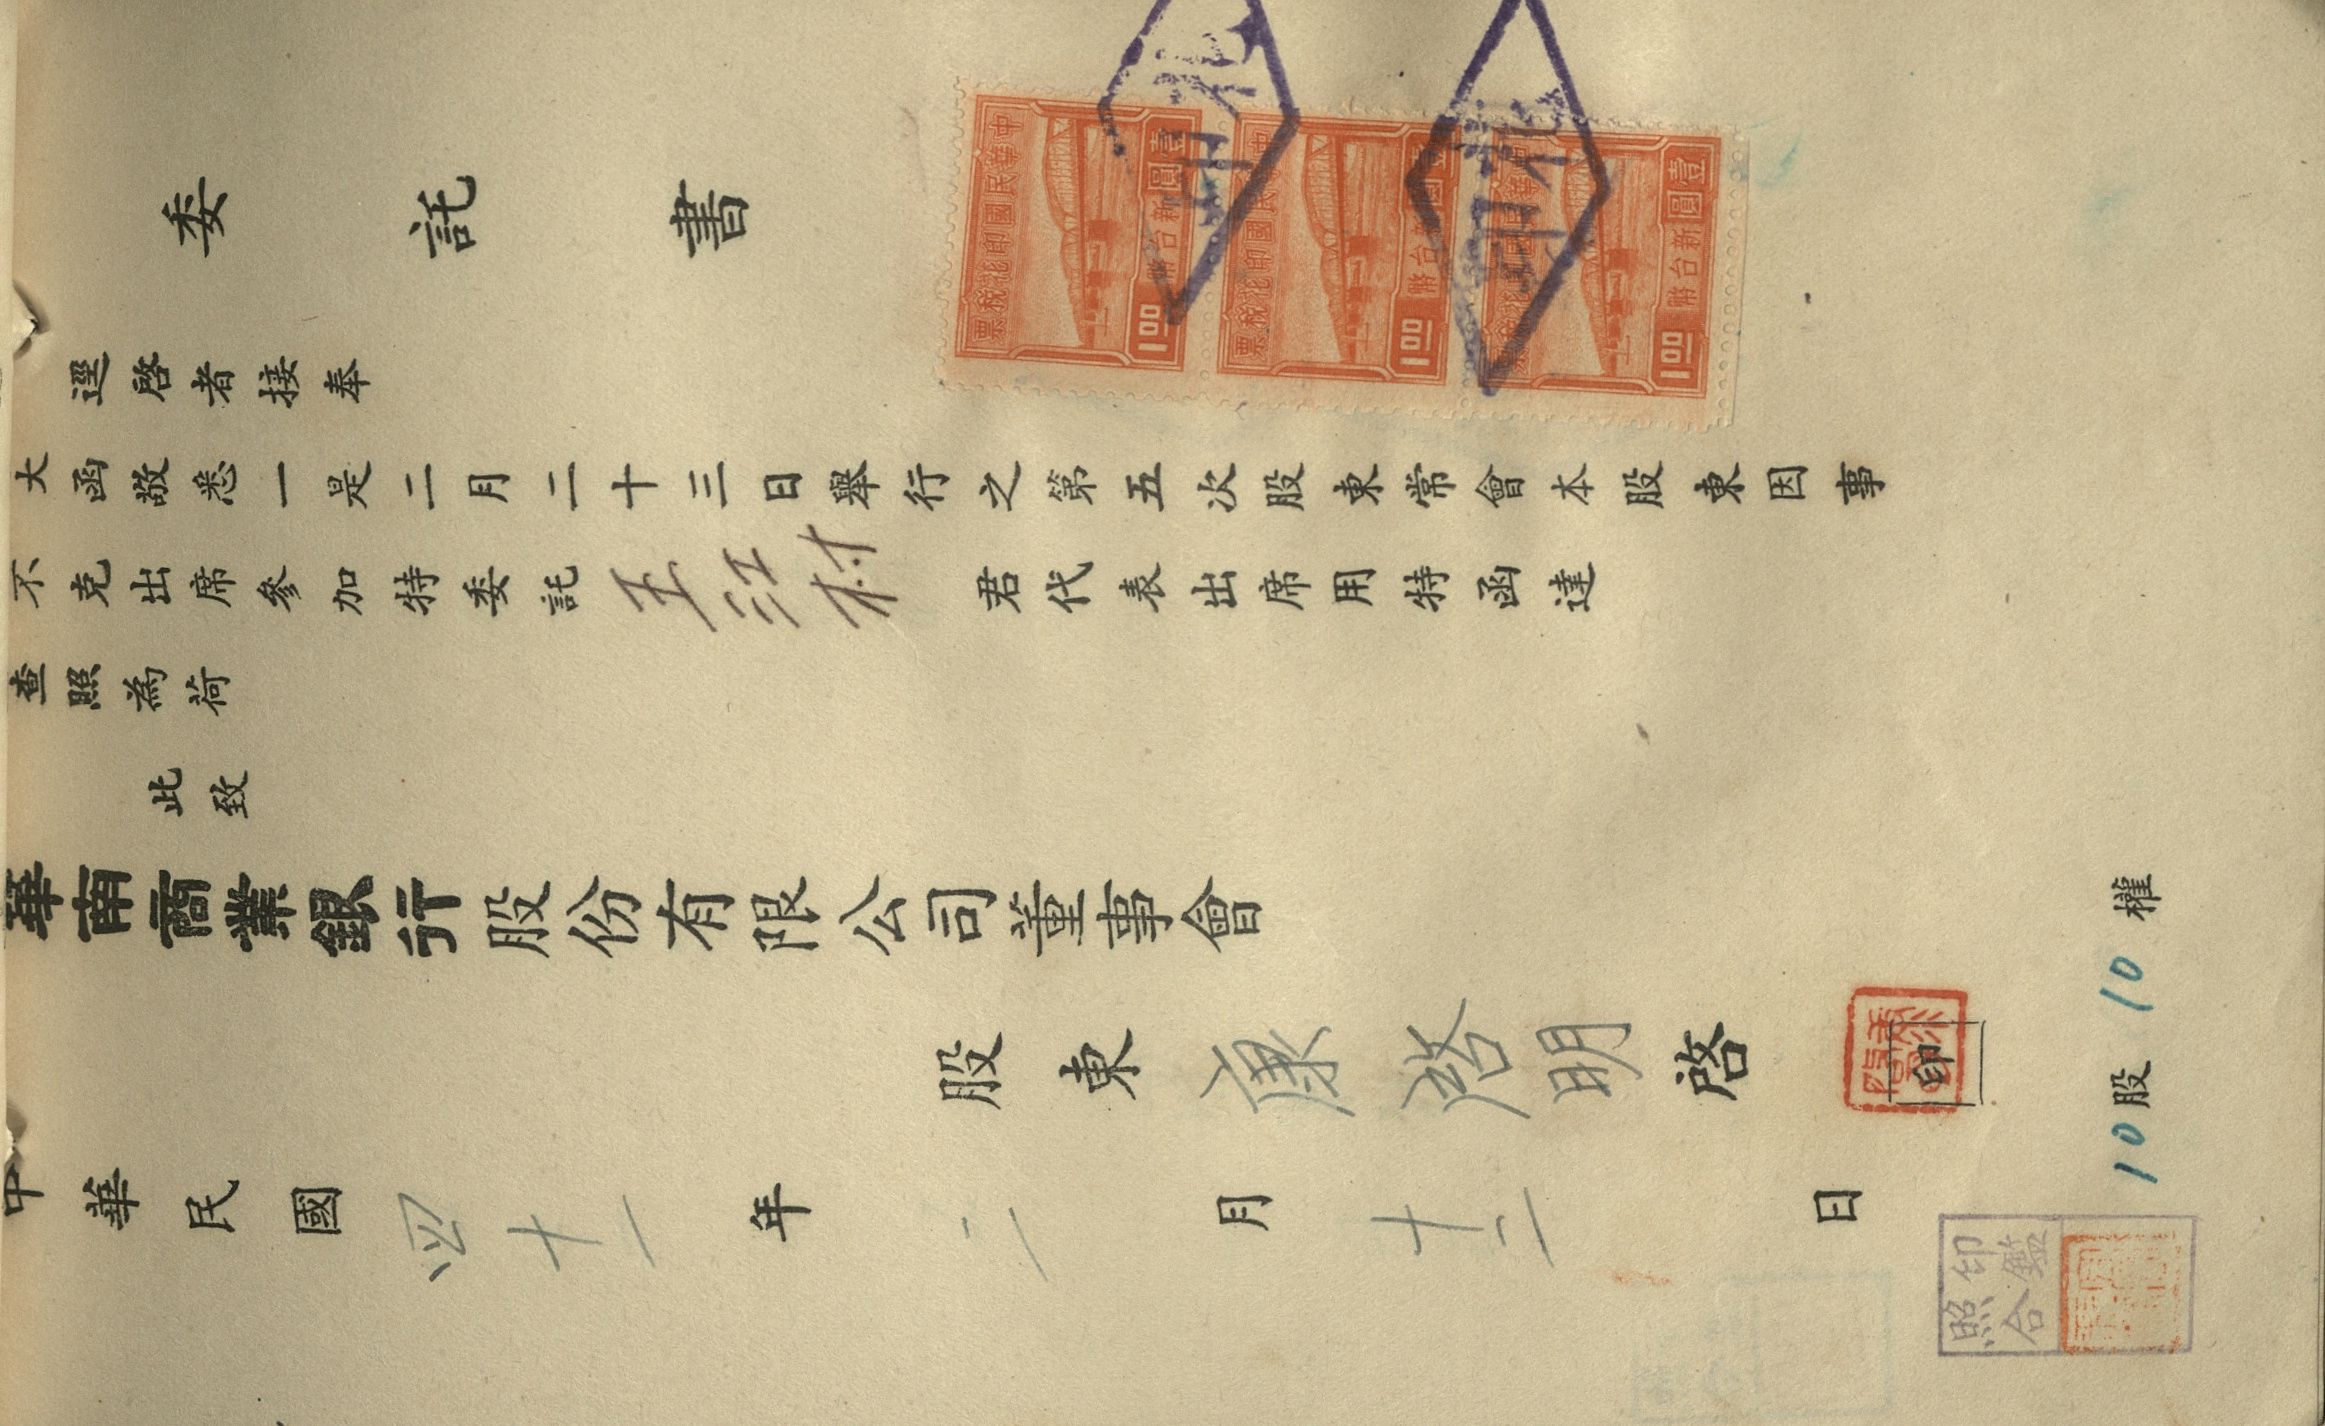 委託書
逕啓者接奉
大函敬悉一是二月二十三日舉行之第五次股東常會本股東因事
不克出席參加特委託王江村君代表出席用特函達
查照為荷
此致
華南商業銀行股份有限公司董事會
股東康啓明啓
印
中華民國四十一年二月十二日
10股10權
中華民國印花稅票
壹圓新台幣
1.00
中華民國印花稅票
壹圓新台幣
1.00
中華民國印花稅票
壹圓新台幣
1.00
印鑑
照合